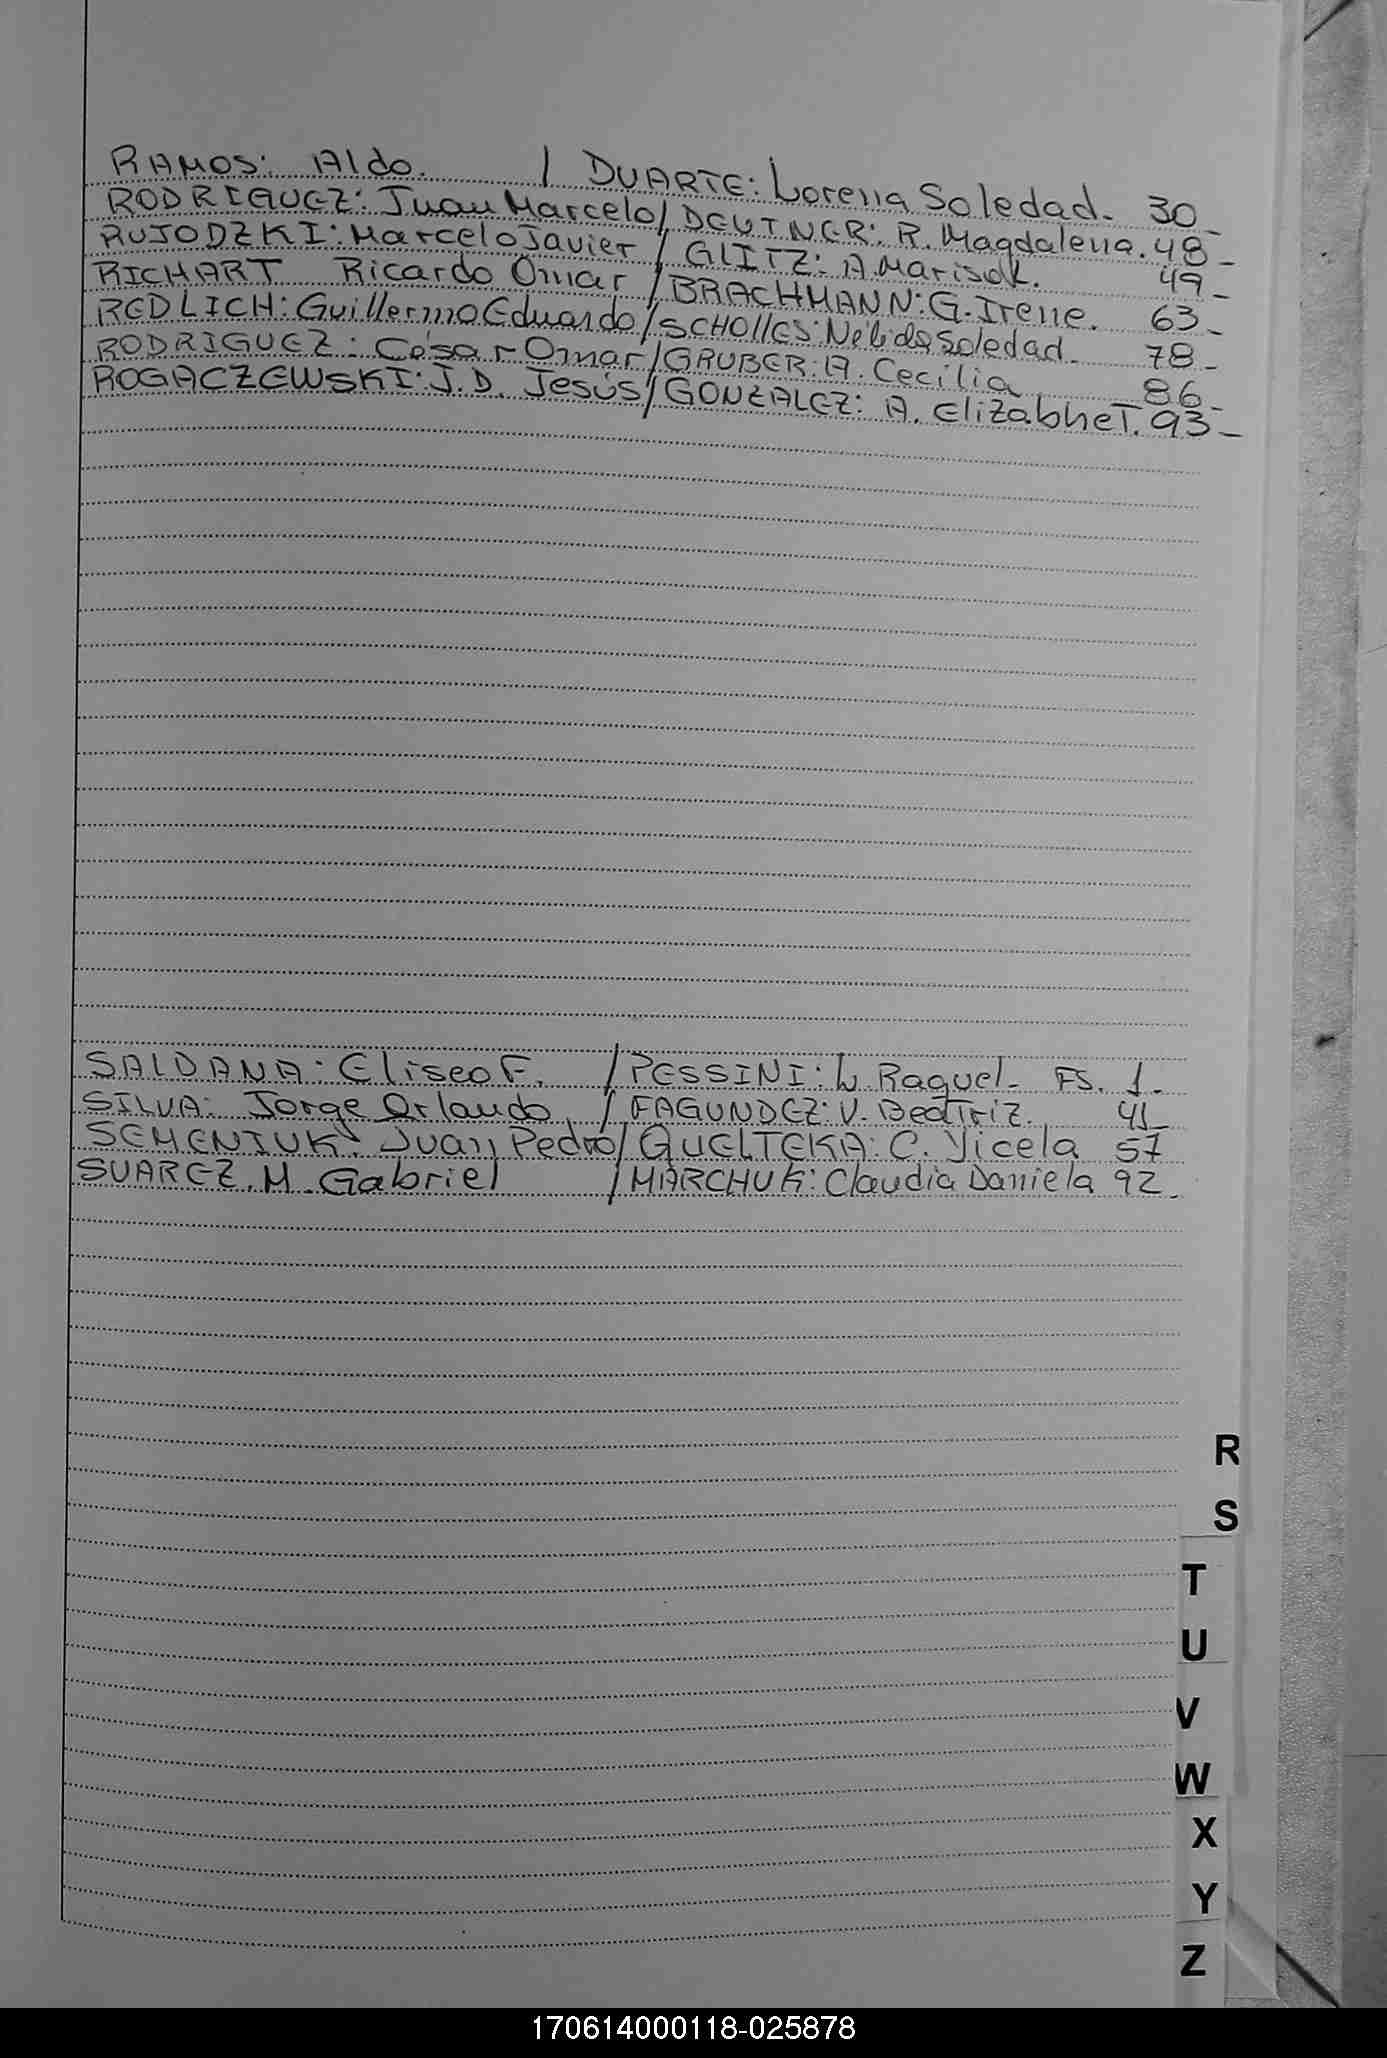 RAMOS: Aldo. / DUARTE: Lorena Soledad. 30_
RODRIGUEZ: Juan Marcelo / DEUTNER: R. Magdalena. 48_
RUJODZKI: Marcelo Javier / GLITZ: A. Marisol. 49_
RICHART Ricardo Omar / BRACHMANN: G. Irene. 63_
REDLICH: Guillermo Eduardo / SCHOLLES: Nelida Soledad. 78_
RODRIGUEZ: César Omar / GRUBER: A. Cecilia 86_
ROGACZEWSKI: J. D. Jesús / GONZALEZ: A. ElizabheT. 93_
SALDANA: Eliseo F. / PESSINI: L. Raquel_ FS. 1_
SILVA: Jorge Orlando / FAGUNDEZ: V. Beatriz. 41_
SEMENIUK: Juan Pedro / QUELTEKA: C. Yicela 57
SUAREZ. M. Gabriel / MARCHUK: Claudia Daniela 92_
R
S
T
U
V
W
X
Y
Z
170614000118-025878